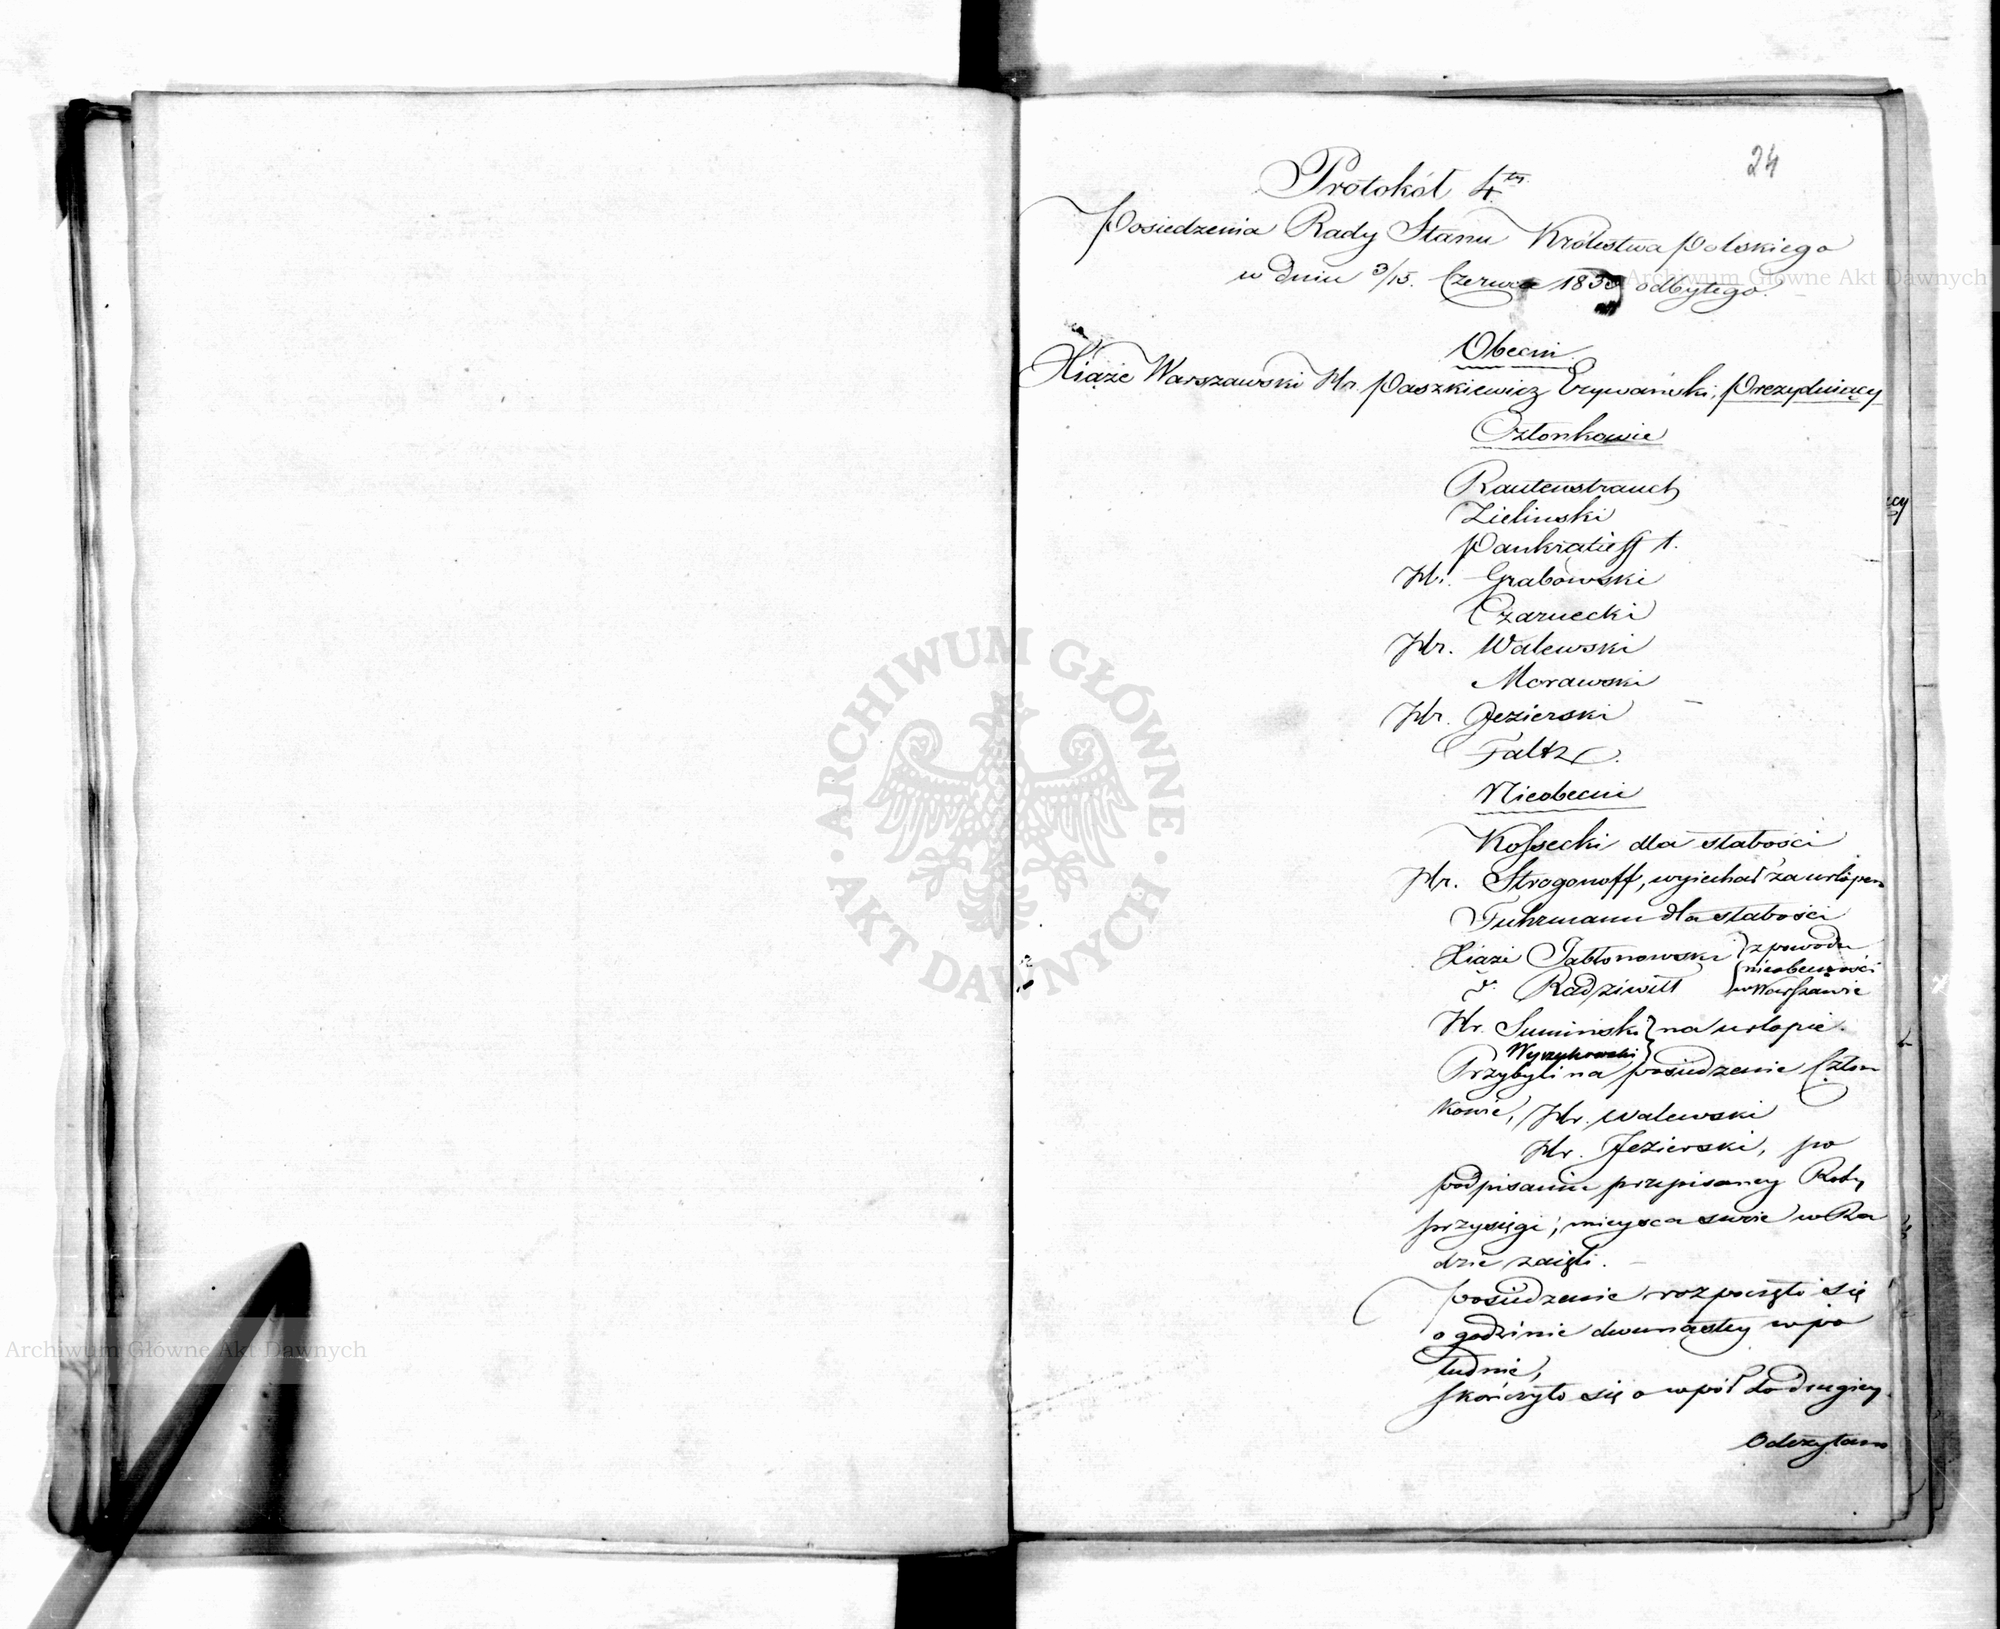 24
Protokół 4ty.
Posiedzenia Rady Stanu Królestwa Polskiego
w dniu 3/15. Czerwca 1833 odbytego.
Obecni.
Xiąże Warszawski Hr. Paszkiewicz Erywański, Prezyduiący
Członkowie
Rautenstrauch
Zielinski
Pankratieff 1.
Hr. Grabowski
Czarnecki
Hr. Walewski
Morawski
Hr. Jezierski
Faltz.
Nieobecni
Kossecki dla słabości
Hr. Strogonoff, wyiechał za urlopem
Fuhrmann dla słabości
Xiąże Jabłonowski } z powodu
nieobecności
d. Radziwiłł w Warszawie
Hr. Sumiński } na urlopie.
Wyczechowski }
Przybyli na posiedzenie Człon
kowie, Hr. Walewski
Hr. Jezierski, po
podpisaniu przepisaney Roty
przysięgi, mieysca swoie w Ra
dzie zaięli.
Posiedzenie rozpoczęło się
o godzinie dwunastey w po
łudnie,
skończyło się o wpół do drugiey.
Odczytano
ARCHIWUM GŁÓWNE
· AKT DAWNYCH ·
Archiwum Główne Akt Dawnych
Archiwum Główne Akt Dawnych